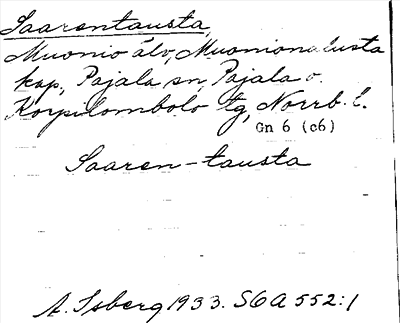 Saarentausta,
Muonio älv, Muonionalusta
kap, Pajala sn, Pajala o.
Korpilombolo tg, Norrb. l.
Gn 6 (c6)
Saaren-tausta
A. Isberg 1933. SGA 552:1